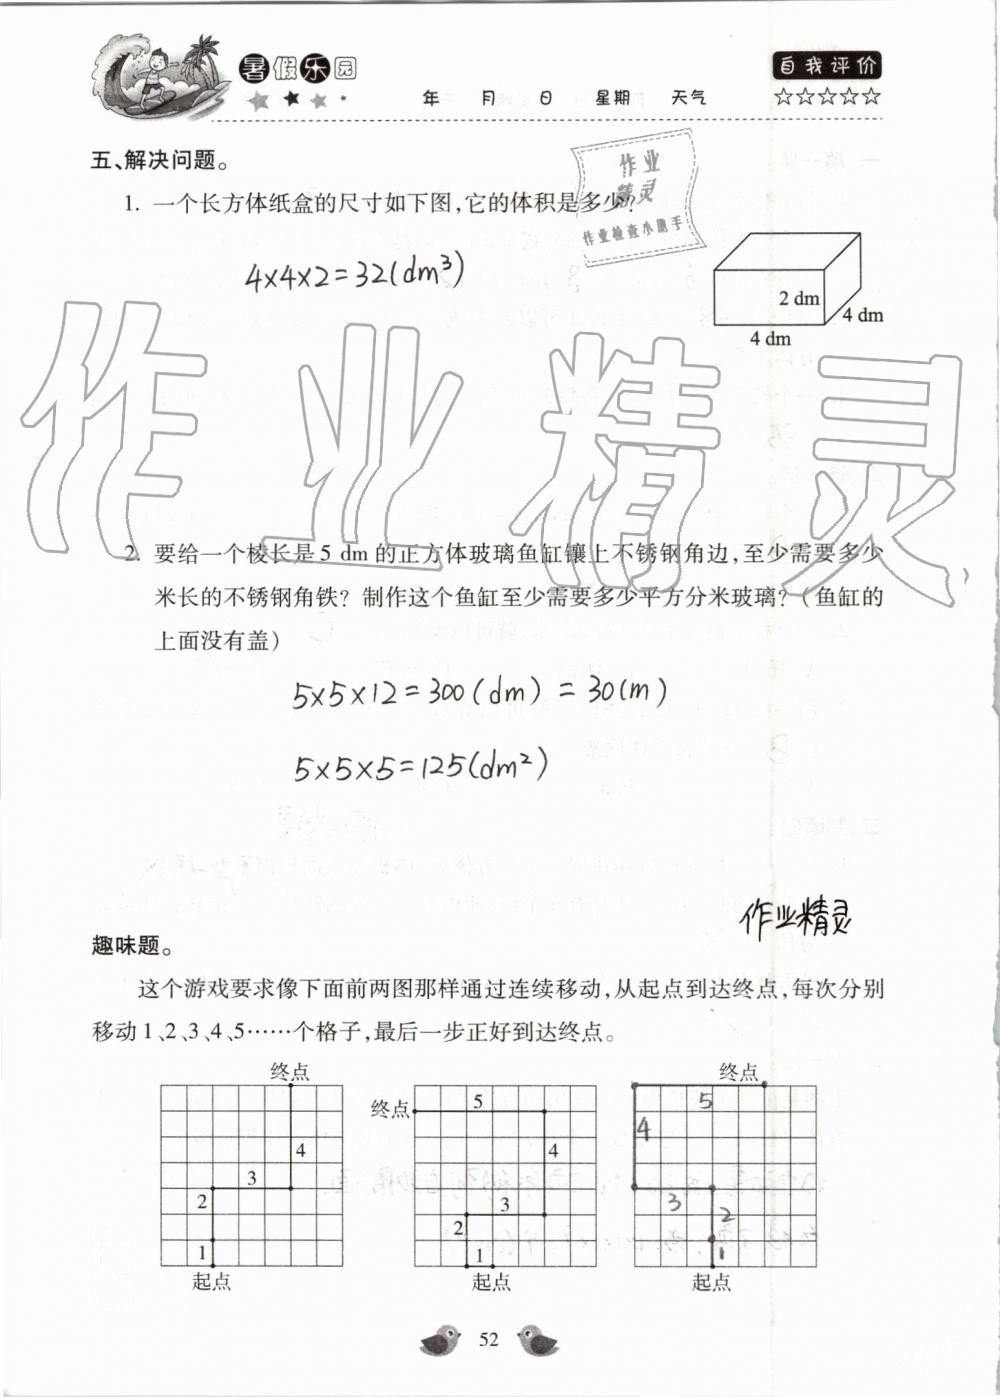 暑假乐园
年 月 日 星期 天气
自我评价
☆☆☆☆☆
五、解决问题。
作业
精灵
作业检查小助手
1. 一个长方体纸盒的尺寸如下图,它的体积是多少?
4×4×2=32(dm³)
2 dm
4 dm
4 dm
作业精灵
2. 要给一个棱长是 5 dm 的正方体玻璃鱼缸镶上不锈钢角边,至少需要多少
米长的不锈钢角铁? 制作这个鱼缸至少需要多少平方分米玻璃?(鱼缸的
上面没有盖)
5×5×12=300(dm)=30(m)
5×5×5=125(dm²)
作业精灵
趣味题。
这个游戏要求像下面前两图那样通过连续移动,从起点到达终点,每次分别
移动1、2、3、4、5……个格子,最后一步正好到达终点。
终点
4
3
2
1
起点
终点
5
4
3
2
1
起点
终点
5
4
3
2
1
起点
52